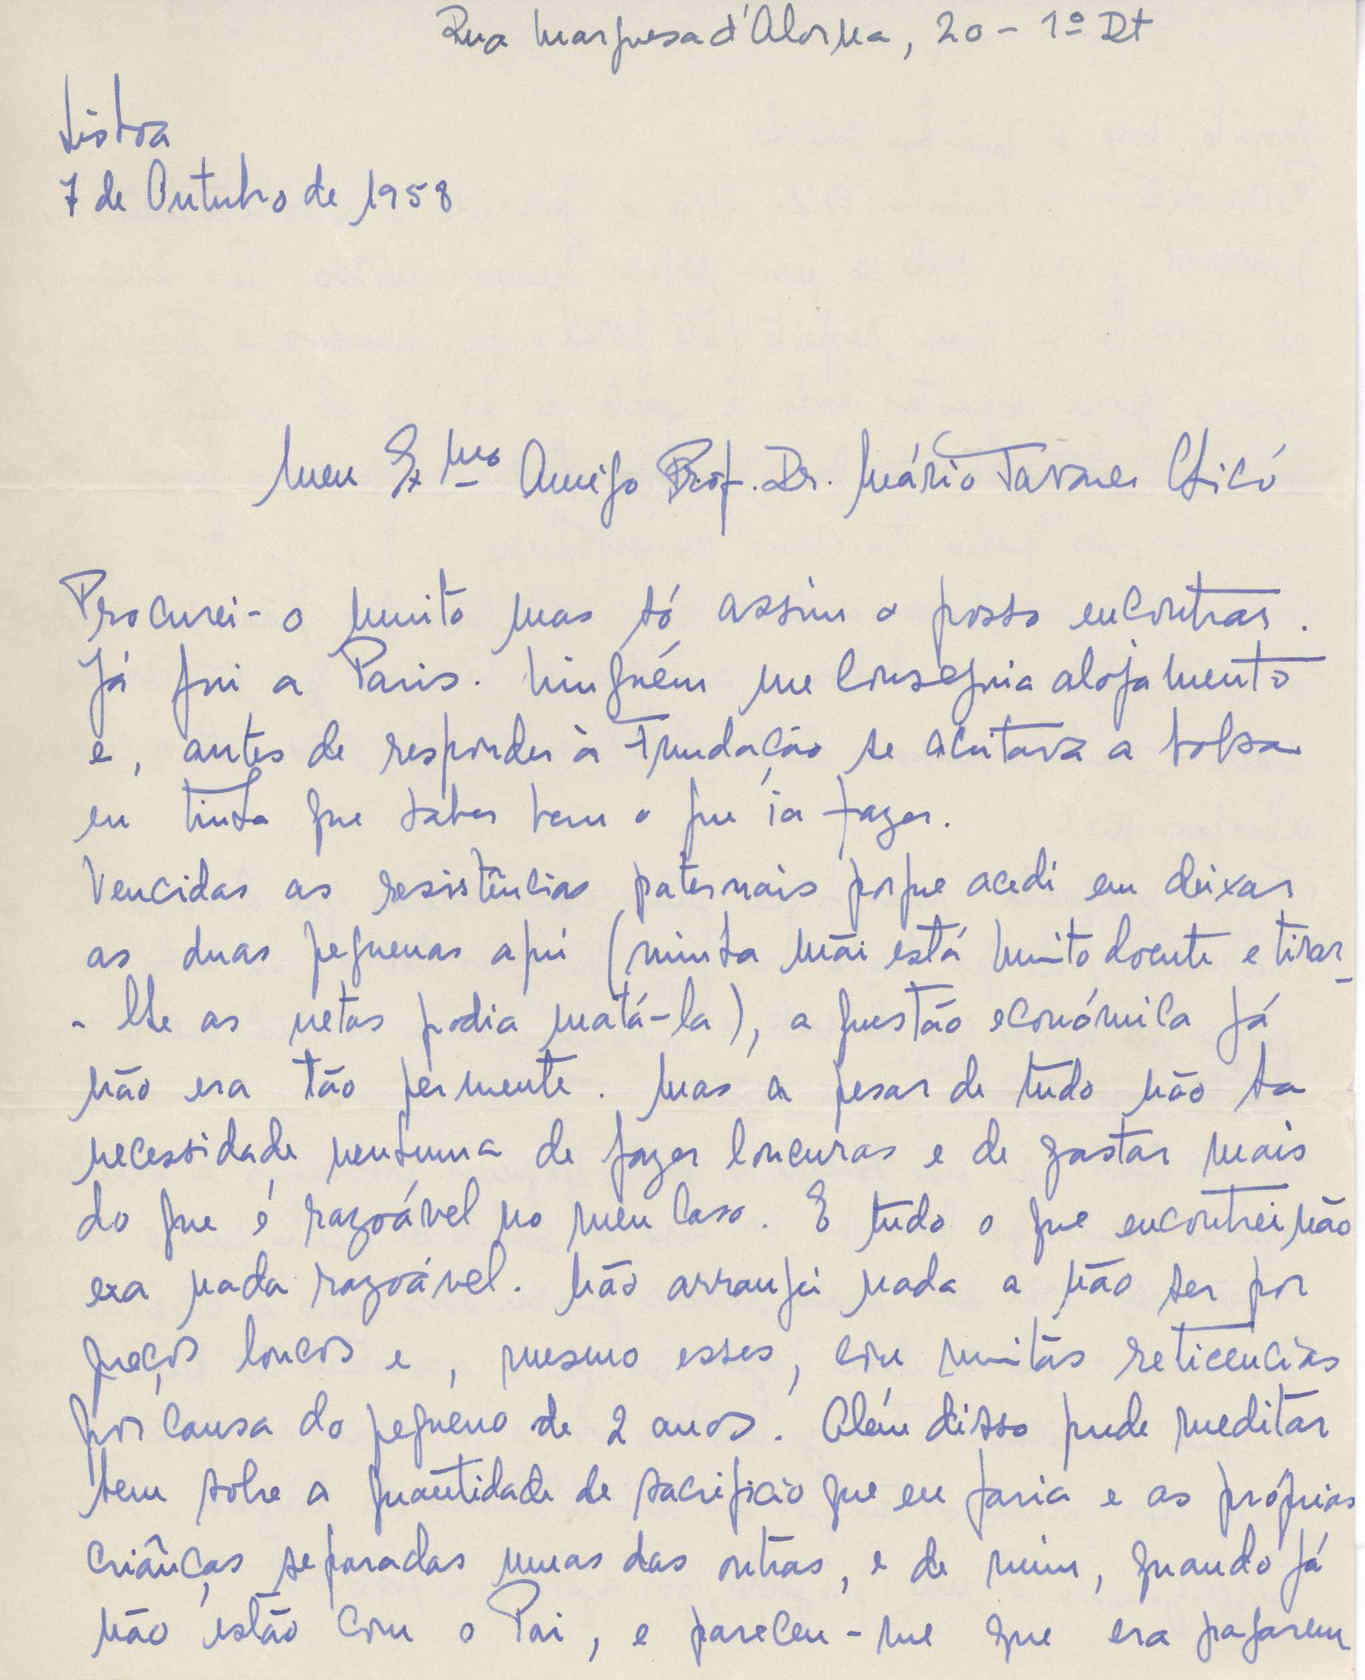 Rua Marquesa d'Alorna, 20 - 1º Dt
Lisboa
7 de Outubro de 1958
Meu Exmo Amigo Prof. Dr. Mário Tavares Chicó
Procurei-o muito mas só assim o posso encontrar.
Já fui a Paris. Ninguém me conseguia alojamento
e, antes de responder à Fundação se aceitava a bolsa
eu tinha que saber bem o que ia fazer.
Vencidas as resistências paternais porque acedi em deixar
as duas pequenas aqui (minha mãi está muito doente e tirar-
-lhe as netas podia matá-la), a questão económica já
não era tão permente. Mas a pesar de tudo não ha
necessidade nenhuma de fazer loucuras e de gastar mais
do que é razoável no meu caso. E tudo o que encontrei não
era nada razoável. Não arranjei nada a não ser por
preços loucos e, mesmo esses, com muitas reticencias
por causa do pequeno de 2 anos. Além disso pude meditar
bem sobre a quantidade de sacrificio que eu faria e as próprias
crianças separadas umas das outras, e de mim, quando já
não estão com o Pai, e pareceu-me que era pagarem